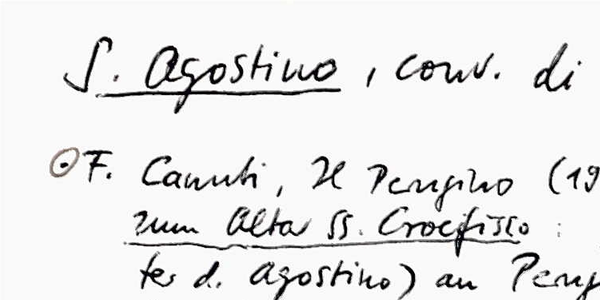 S. Agostino, conv. di
F. Canuti, Il Perugino (19
zum Altar SS. Crocifisso :
ter d. Agostino) an Perug